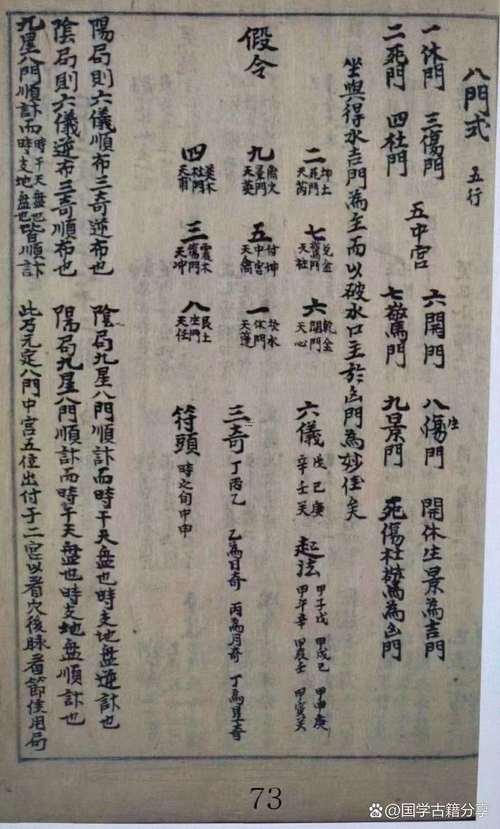 八門式　五行
一休門　三傷門　五中宮　六開門　八傷門　生　開休生景為吉門
二死門　四杜門　七驚門　九景門　死傷杜驚為凶門
坐與得水吉門為主而以破水口主於凶門為妙侄矣
假令
二 坤土 死門 天芮　七 兌金 驚門 天柱　六 乾金 開門 天心
九 景門 天英　五 付坤 中宮 天禽　一 坎水 休門 天蓬
四 杜門　三 震木 天冲　八 艮土 生門 天任
六儀　戊己庚　辛壬癸　起法　甲子戊　甲戌己　甲申庚　甲午辛　甲辰壬　甲寅癸
三奇　丁丙乙　乙為日奇　丙為月奇　丁為星奇
符頭　時之旬中申
陽局則六儀順布三奇逆布也　陰局九星八門順計而時干天盤也時支地盤逆計也
陰局則六儀逆布三奇順布也　陽局九星八門順計而時干天盤也時支地盤順計也
九星八門順計而時干天盤也時支地盤也皆順計　此乃元定八門中宮五位出付于二宮以看穴後脉看節使用局
73
国学古籍分享